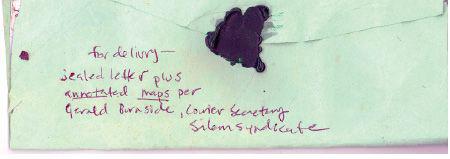 for delivry—
sealed letter plus
annotated maps per
Gerald Burnside, Courier Secretary
Silem Syndicate